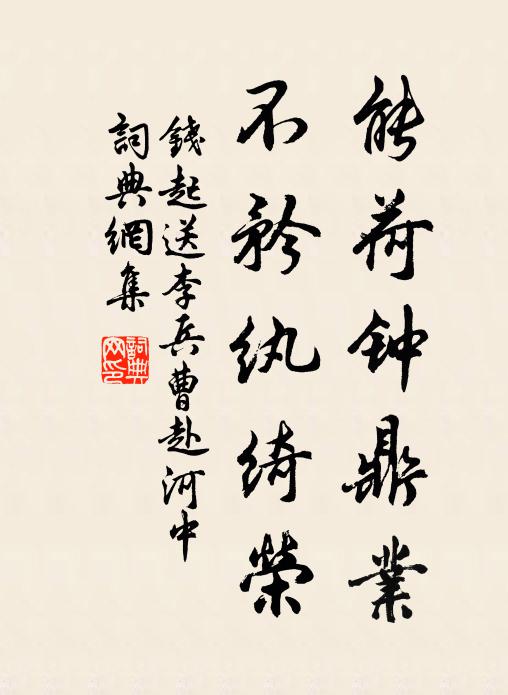 能荷钟鼎業
不矜纨綺榮
錢起送李兵曹赴河中
詞典網集
詞典網印